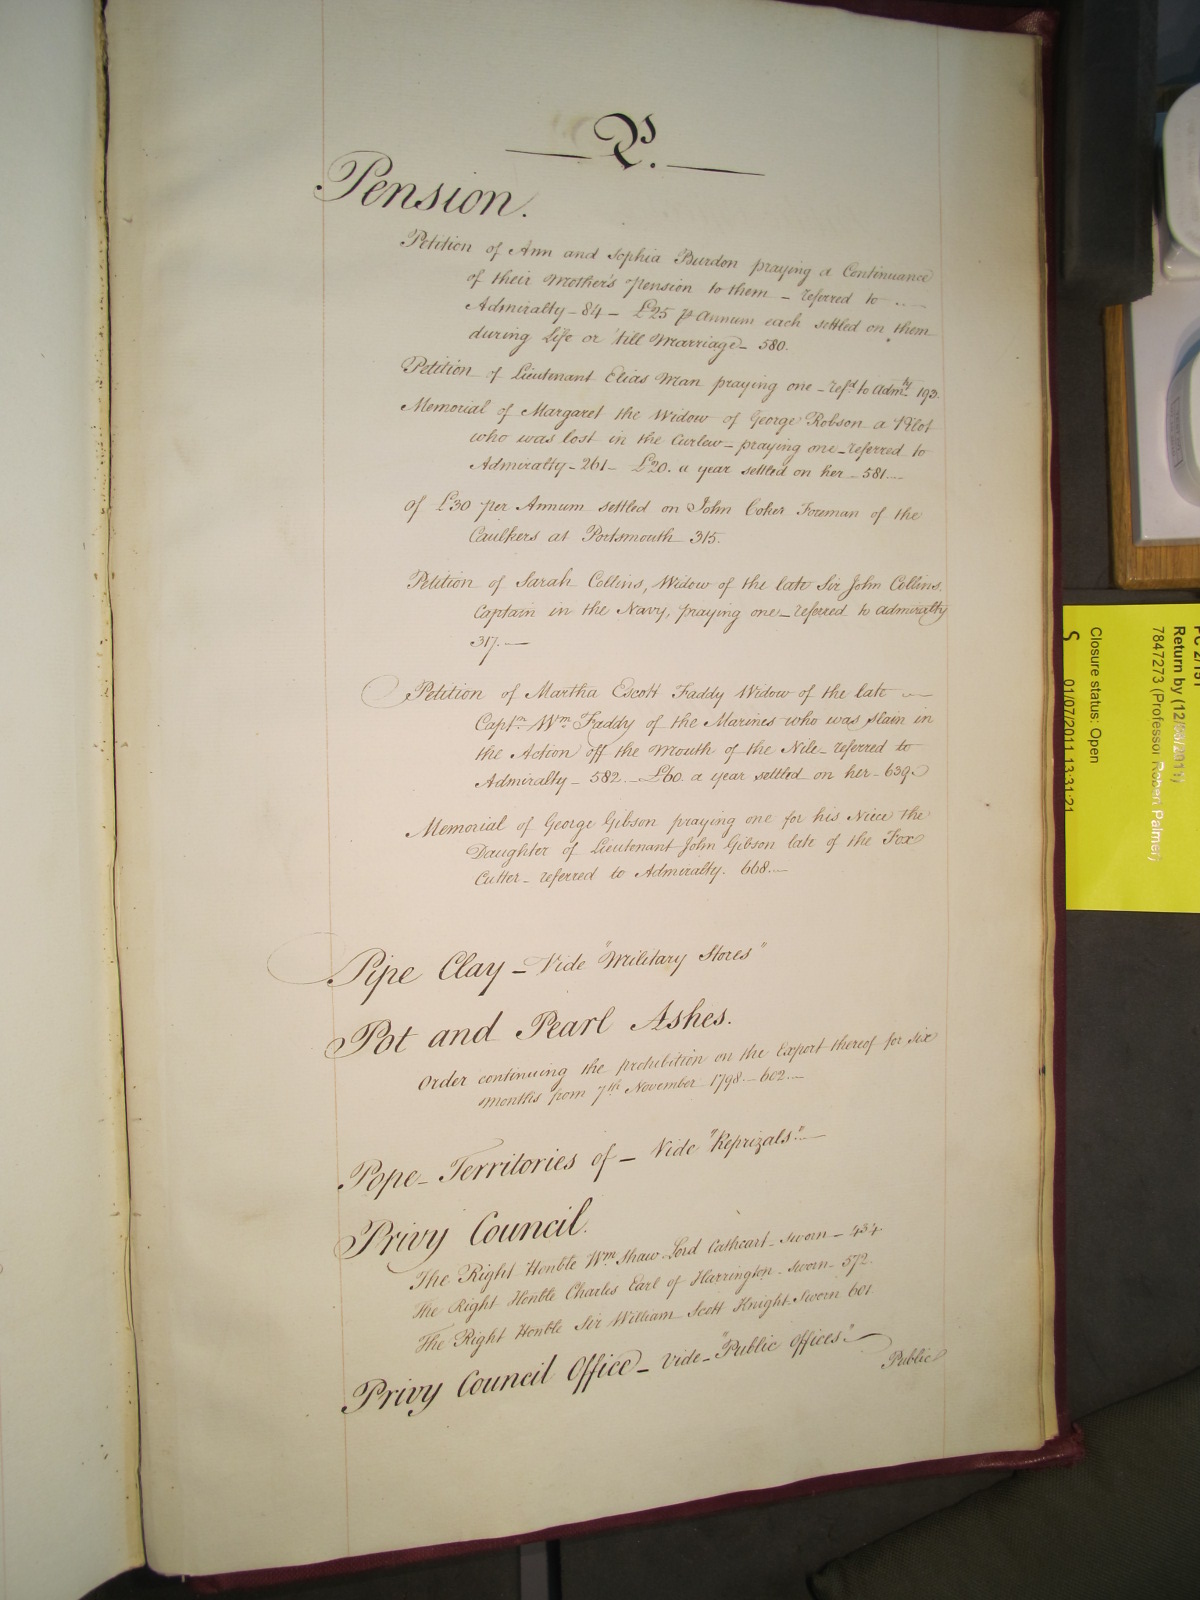 P.
Pension.
Petition of Ann and Sophia Burdon praying a Continuance
of their Mother's Pension to them – referred to
Admiralty – 84 – £25 p Annum each settled on them
during Life or 'till Marriage – 580.
Petition of Lieutenant Elias Man praying one – refd. to Admty. 193.
Memorial of Margaret the Widow of George Robson a Pilot
who was lost in the Curlew – praying one – referred to
Admiralty – 261 – £20. a year settled on her – 581.
of £30 per Annum settled on John Coker Foreman of the
Caulkers at Portsmouth 315.
Petition of Sarah Collins, Widow of the late Sir John Collins,
Captain in the Navy, praying one – referred to Admiralty
317. –
Petition of Martha Escott Faddy Widow of the late
Captn. Wm. Faddy of the Marines who was slain in
the Action off the Mouth of the Nile – referred to
Admiralty – 582. – £60 a year settled on her – 639
Memorial of George Gibson praying one for his Niece the
Daughter of Lieutenant John Gibson late of the Fox
Cutter – referred to Admiralty. 668.
Pipe Clay – Vide "Military Stores"
Pot and Pearl Ashes.
Order continuing the prohibition on the Export thereof for six
months from 7th November 1798 – 602.
Pope – Territories of – Vide "Reprizals"
Privy Council.
The Right Honble Wm. Shaw Lord Cathcart – sworn – 434.
The Right Honble Charles Earl of Harrington – sworn – 572.
The Right Honble Sir William Scott Knight – Sworn 601
Privy Council Office – Vide – "Public Offices"
Public
Return by (12/08/2011)
7847273 (Professor Robert Palmer)
Closure status: Open
S 01/07/2011 13:31:21